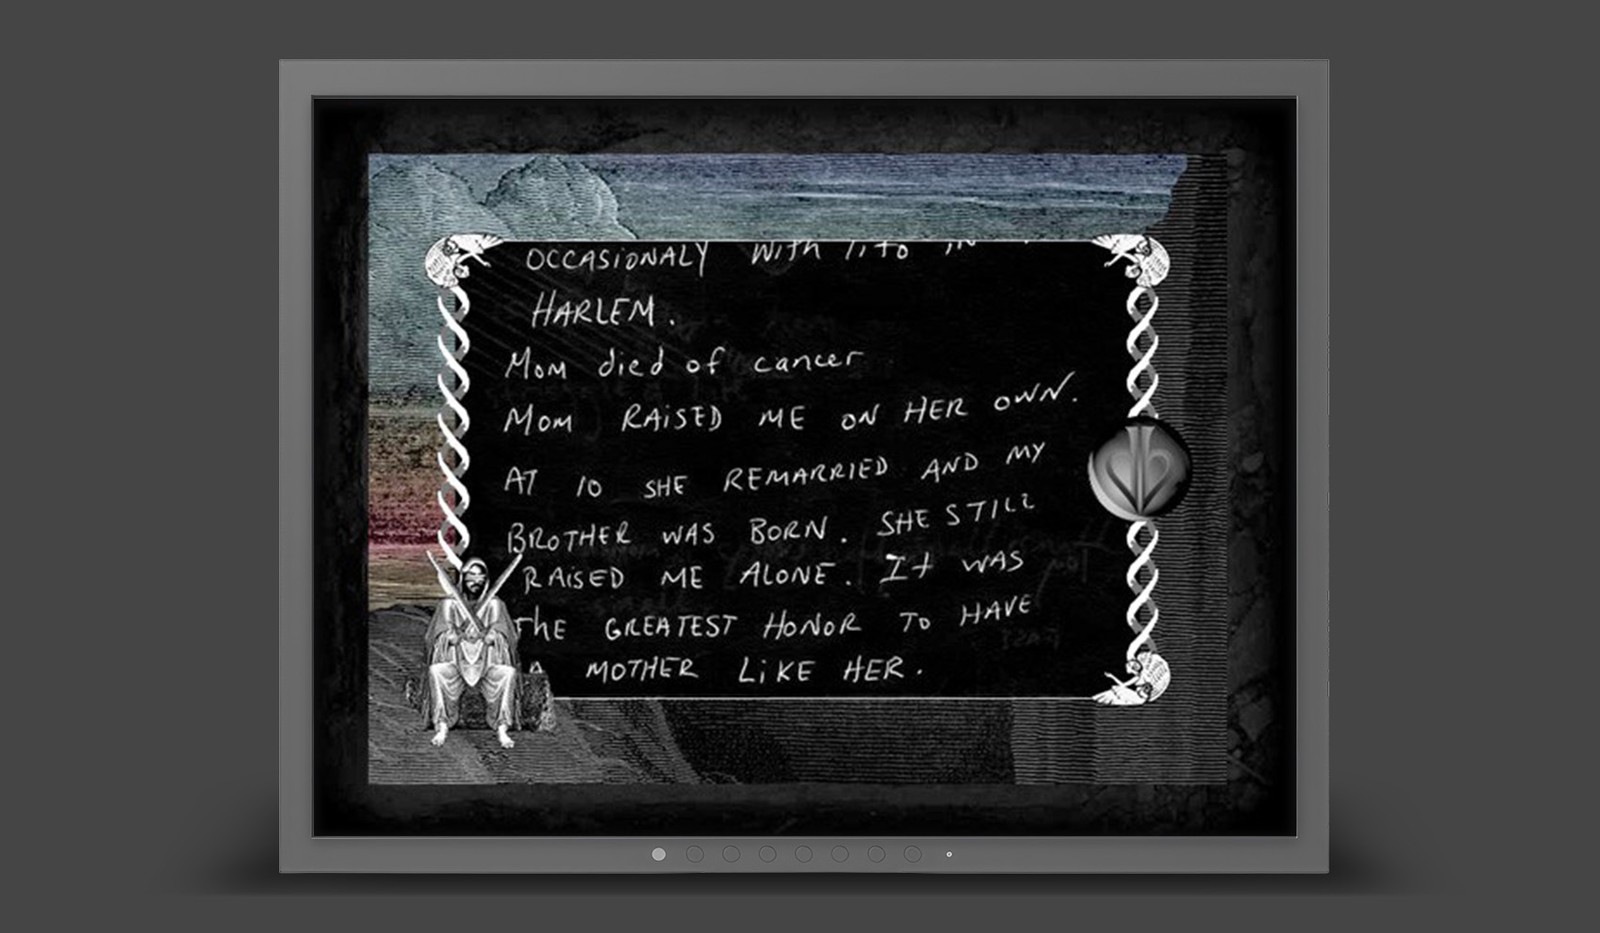 OCCASIONALY With Tito IN
HARLEM.
Mom died of cancer
Mom RAISED ME ON HER OWN.
AT 10 SHE REMARRIED AND MY
BROTHER WAS BORN. SHE STILL
RAISED ME ALONE. It WAS
The GREATEST HONOR TO HAVE
A MOTHER LiKE HER.